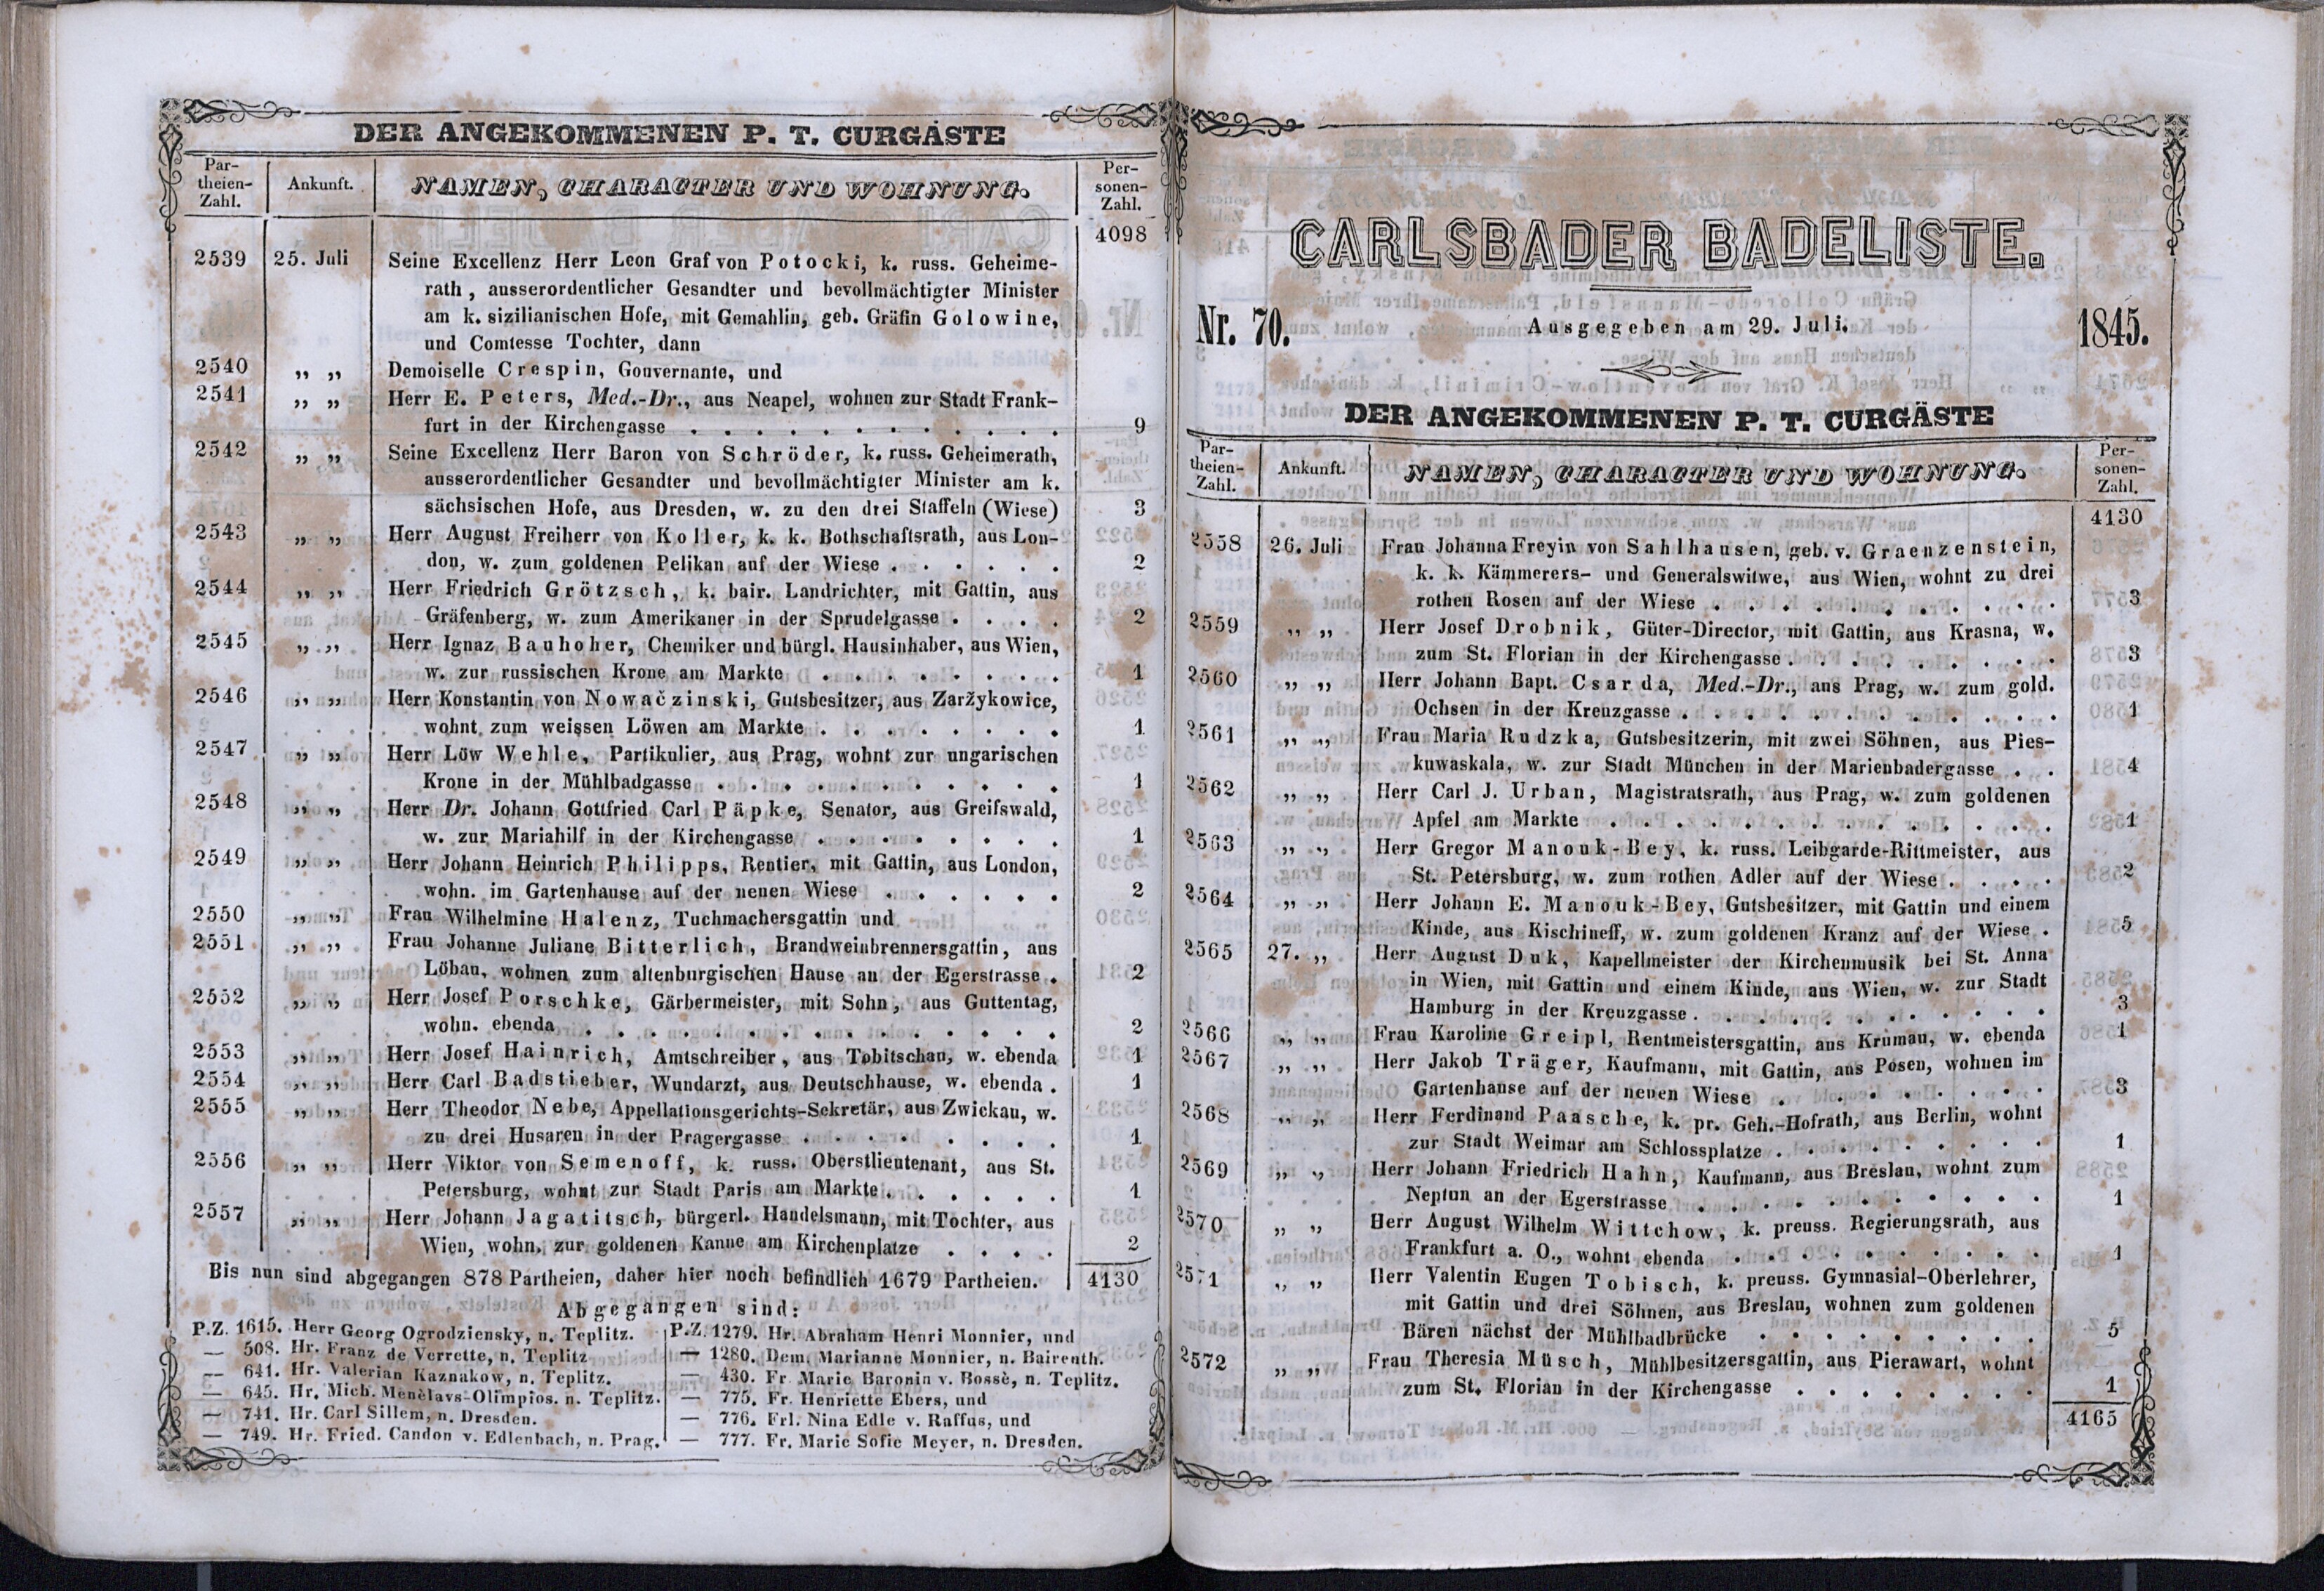 DER ANGEKOMMENEN P. T. CURGÄSTE
Par-
theien-
Zahl.
Ankunft.
NAMEN, CHARACTER UND WOHNUNG.
Per-
sonen-
Zahl.
4098
2539 25. Juli Seine Excellenz Herr Leon Graf von Potocki, k. russ. Geheime-
rath, ausserordentlicher Gesandter und bevollmächtigter Minister
am k. sizilianischen Hofe, mit Gemahlin, geb. Gräfin Golowine,
und Comtesse Tochter, dann
2540 „ „ Demoiselle Crespin, Gouvernante, und
2541 „ „ Herr E. Peters, Med.-Dr., aus Neapel, wohnen zur Stadt Frank-
furt in der Kirchengasse . . . . . . . . . . . . 9
2542 „ „ Seine Excellenz Herr Baron von Schröder, k. russ. Geheimerath,
ausserordentlicher Gesandter und bevollmächtigter Minister am k.
sächsischen Hofe, aus Dresden, w. zu den drei Staffeln (Wiese) 3
2543 „ „ Herr August Freiherr von Koller, k. k. Bothschaftsrath, aus Lon-
don, w. zum goldenen Pelikan auf der Wiese . . . . . . 2
2544 „ „ Herr Friedrich Grötzsch, k. bair. Landrichter, mit Gattin, aus
Gräfenberg, w. zum Amerikaner in der Sprudelgasse . . . . 2
2545 „ „ Herr Ignaz Bauhoher, Chemiker und bürgl. Hausinhaber, aus Wien,
w. zur russischen Krone am Markte . . . . . . . . 1
2546 „ „ Herr Konstantin von Nowačzinski, Gutsbesitzer, aus Zaržykowice,
wohnt zum weissen Löwen am Markte . . . . . . . . 1
2547 „ „ Herr Löw Wehle, Partikulier, aus Prag, wohnt zur ungarischen
Krone in der Mühlbadgasse . . . . . . . . . . . 1
2548 „ „ Herr Dr. Johann Gottfried Carl Päpke, Senator, aus Greifswald,
w. zur Mariahilf in der Kirchengasse . . . . . . . . 1
2549 „ „ Herr Johann Heinrich Philipps, Rentier, mit Gattin, aus London,
wohn. im Gartenhause auf der neuen Wiese . . . . . . 2
2550 „ „ Frau Wilhelmine Halenz, Tuchmachersgattin und
2551 „ „ Frau Johanne Juliane Bitterlich, Brandweinbrennersgattin, aus
Löbau, wohnen zum altenburgischen Hause an der Egerstrasse . 2
2552 „ „ Herr Josef Porschke, Gärbermeister, mit Sohn, aus Guttentag,
wohn. ebenda . . . . . . . . . . . . . . . 2
2553 „ „ Herr Josef Hainrich, Amtschreiber, aus Tobitschau, w. ebenda 1
2554 „ „ Herr Carl Badstieber, Wundarzt, aus Deutschhause, w. ebenda . 1
2555 „ „ Herr Theodor Nebe, Appellationsgerichts-Sekretär, aus Zwickau, w.
zu drei Husaren in der Pragergasse . . . . . . . . 1
2556 „ „ Herr Viktor von Semenoff, k. russ. Oberstlieutenant, aus St.
Petersburg, wohnt zur Stadt Paris am Markte . . . . . . 1
2557 „ „ Herr Johann Jagatitsch, bürgerl. Handelsmann, mit Tochter, aus
Wien, wohn. zur goldenen Kanne am Kirchenplatze . . . . 2
Bis nun sind abgegangen 878 Partheien, daher hier noch befindlich 1679 Partheien. 4130
Abgegangen sind:
P.Z. 1615. Herr Georg Ogrodziensky, n. Teplitz.
— 508. Hr. Franz de Verrette, n. Teplitz
— 641. Hr. Valerian Kaznakow, n. Teplitz.
— 645. Hr. Mich. Menèlavs-Olimpios. n. Teplitz.
— 741. Hr. Carl Sillem, n. Dresden.
— 749. Hr. Fried. Candon v. Edlenbach, n. Prag.
P.Z. 1279. Hr. Abraham Henri Monnier, und
— 1280. Dem. Marianne Monnier, n. Baireuth.
— 430. Fr. Marie Baronin v. Bossè, n. Teplitz.
— 775. Fr. Henriette Ebers, und
— 776. Frl. Nina Edle v. Raffus, und
— 777. Fr. Marie Sofie Meyer, n. Dresden.
CARLSBADER BADELISTE.
Nr. 70. Ausgegeben am 29. Juli. 1845.
DER ANGEKOMMENEN P. T. CURGÄSTE
Par-
theien-
Zahl.
Ankunft.
NAMEN, CHARACTER UND WOHNUNG.
Per-
sonen-
Zahl.
4130
2558 26. Juli Frau Johanna Freyin von Sahlhausen, geb. v. Graenzenstein,
k. k. Kämmerers- und Generalswitwe, aus Wien, wohnt zu drei
rothen Rosen auf der Wiese . . . . . . . . . . . 3
2559 „ „ Herr Josef Drobnik, Güter-Director, mit Gattin, aus Krasna, w.
zum St. Florian in der Kirchengasse . . . . . . . . . 3
2560 „ „ Herr Johann Bapt. Csarda, Med.-Dr., aus Prag, w. zum gold.
Ochsen in der Kreuzgasse . . . . . . . . . . . . 1
2561 „ „ Frau Maria Rudzka, Gutsbesitzerin, mit zwei Söhnen, aus Pies-
kuwaskala, w. zur Stadt München in der Marienbadergasse . . 4
2562 „ „ Herr Carl J. Urban, Magistratsrath, aus Prag, w. zum goldenen
Apfel am Markte . . . . . . . . . . . . . . 1
2563 „ „ Herr Gregor Manouk-Bey, k. russ. Leibgarde-Rittmeister, aus
St. Petersburg, w. zum rothen Adler auf der Wiese . . . . 2
2564 „ „ Herr Johann E. Manouk-Bey, Gutsbesitzer, mit Gattin und einem
Kinde, aus Kischineff, w. zum goldenen Kranz auf der Wiese . 5
2565 27. „ Herr August Duk, Kapellmeister der Kirchenmusik bei St. Anna
in Wien, mit Gattin und einem Kinde, aus Wien, w. zur Stadt
Hamburg in der Kreuzgasse . . . . . . . . . . . 3
2566 „ „ Frau Karoline Greipl, Rentmeistersgattin, aus Krumau, w. ebenda 1
2567 „ „ Herr Jakob Träger, Kaufmann, mit Gattin, aus Posen, wohnen im
Gartenhause auf der neuen Wiese . . . . . . . . 3
2568 „ „ Herr Ferdinand Paasche, k. pr. Geh.-Hofrath, aus Berlin, wohnt
zur Stadt Weimar am Schlossplatze . . . . . . . . . 1
2569 „ „ Herr Johann Friedrich Hahn, Kaufmann, aus Breslau, wohnt zum
Neptun an der Egerstrasse . . . . . . . . . . . 1
2570 „ „ Herr August Wilhelm Wittchow, k. preuss. Regierungsrath, aus
Frankfurt a. O., wohnt ebenda . . . . . . . . . . 1
2571 „ „ Herr Valentin Eugen Tobisch, k. preuss. Gymnasial-Oberlehrer,
mit Gattin und drei Söhnen, aus Breslau, wohnen zum goldenen
Bären nächst der Mühlbadbrücke . . . . . . . . . 5
2572 „ „ Frau Theresia Müsch, Mühlbesitzersgattin, aus Pierawart, wohnt
zum St. Florian in der Kirchengasse . . . . . . . . 1
4165